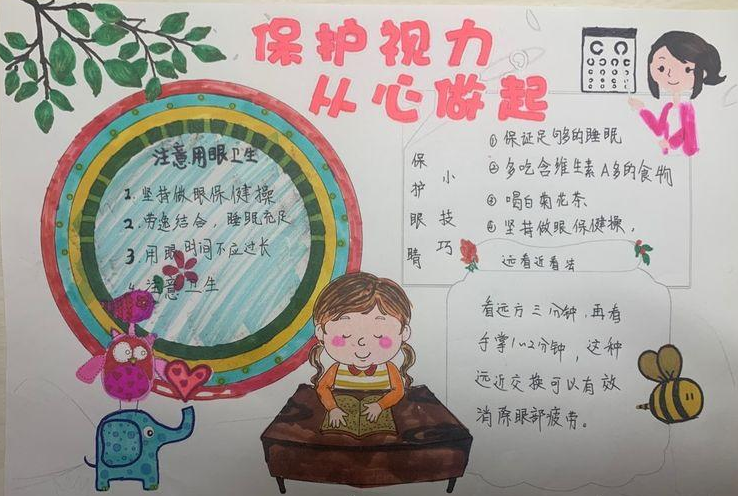 保护视力
从心做起
注意用眼卫生
1. 坚持做眼保健操
2. 劳逸结合，睡眠充足
3. 用眼时间不应过长
4. 注意卫生
保护眼睛
小技巧
① 保证足够的睡眠
② 多吃含维生素A多的食物
③ 喝白菊花茶
④ 坚持做眼保健操，
远看近看法
看远方三分钟，再看
手掌1~2分钟，这种
远近交换可以有效
消除眼部疲劳。